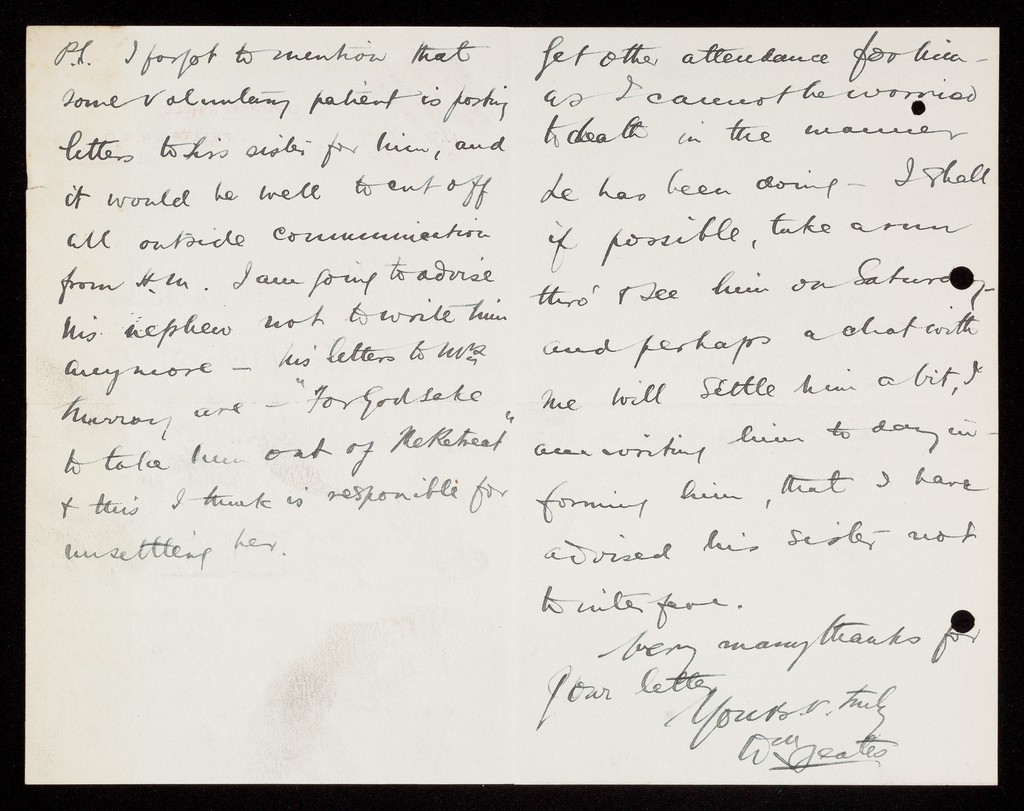 P.S. I forgot to mention that
some voluntary patient is posting
letters to his sister for him, and
it would be well to cut off
all outside communication
from H.M. I am going to advise
his nephew not to write him
anymore — his letters to Mrs
Murray are — "For God sake
to take him out of The Retreat"
& this I think is responsible for
unsettling her.
get other attendance for him —
as I cannot be worried
to death in the manner
he has been doing — I shall
if possible, take a run
thro' & see him on Saturday —
and perhaps a chat with
me will settle him a bit, I
am writing him to day in-
forming him, that I have
advised his sister not
to interfere.
Very many thanks for
your letter
Yours v. truly
Wm Yeates